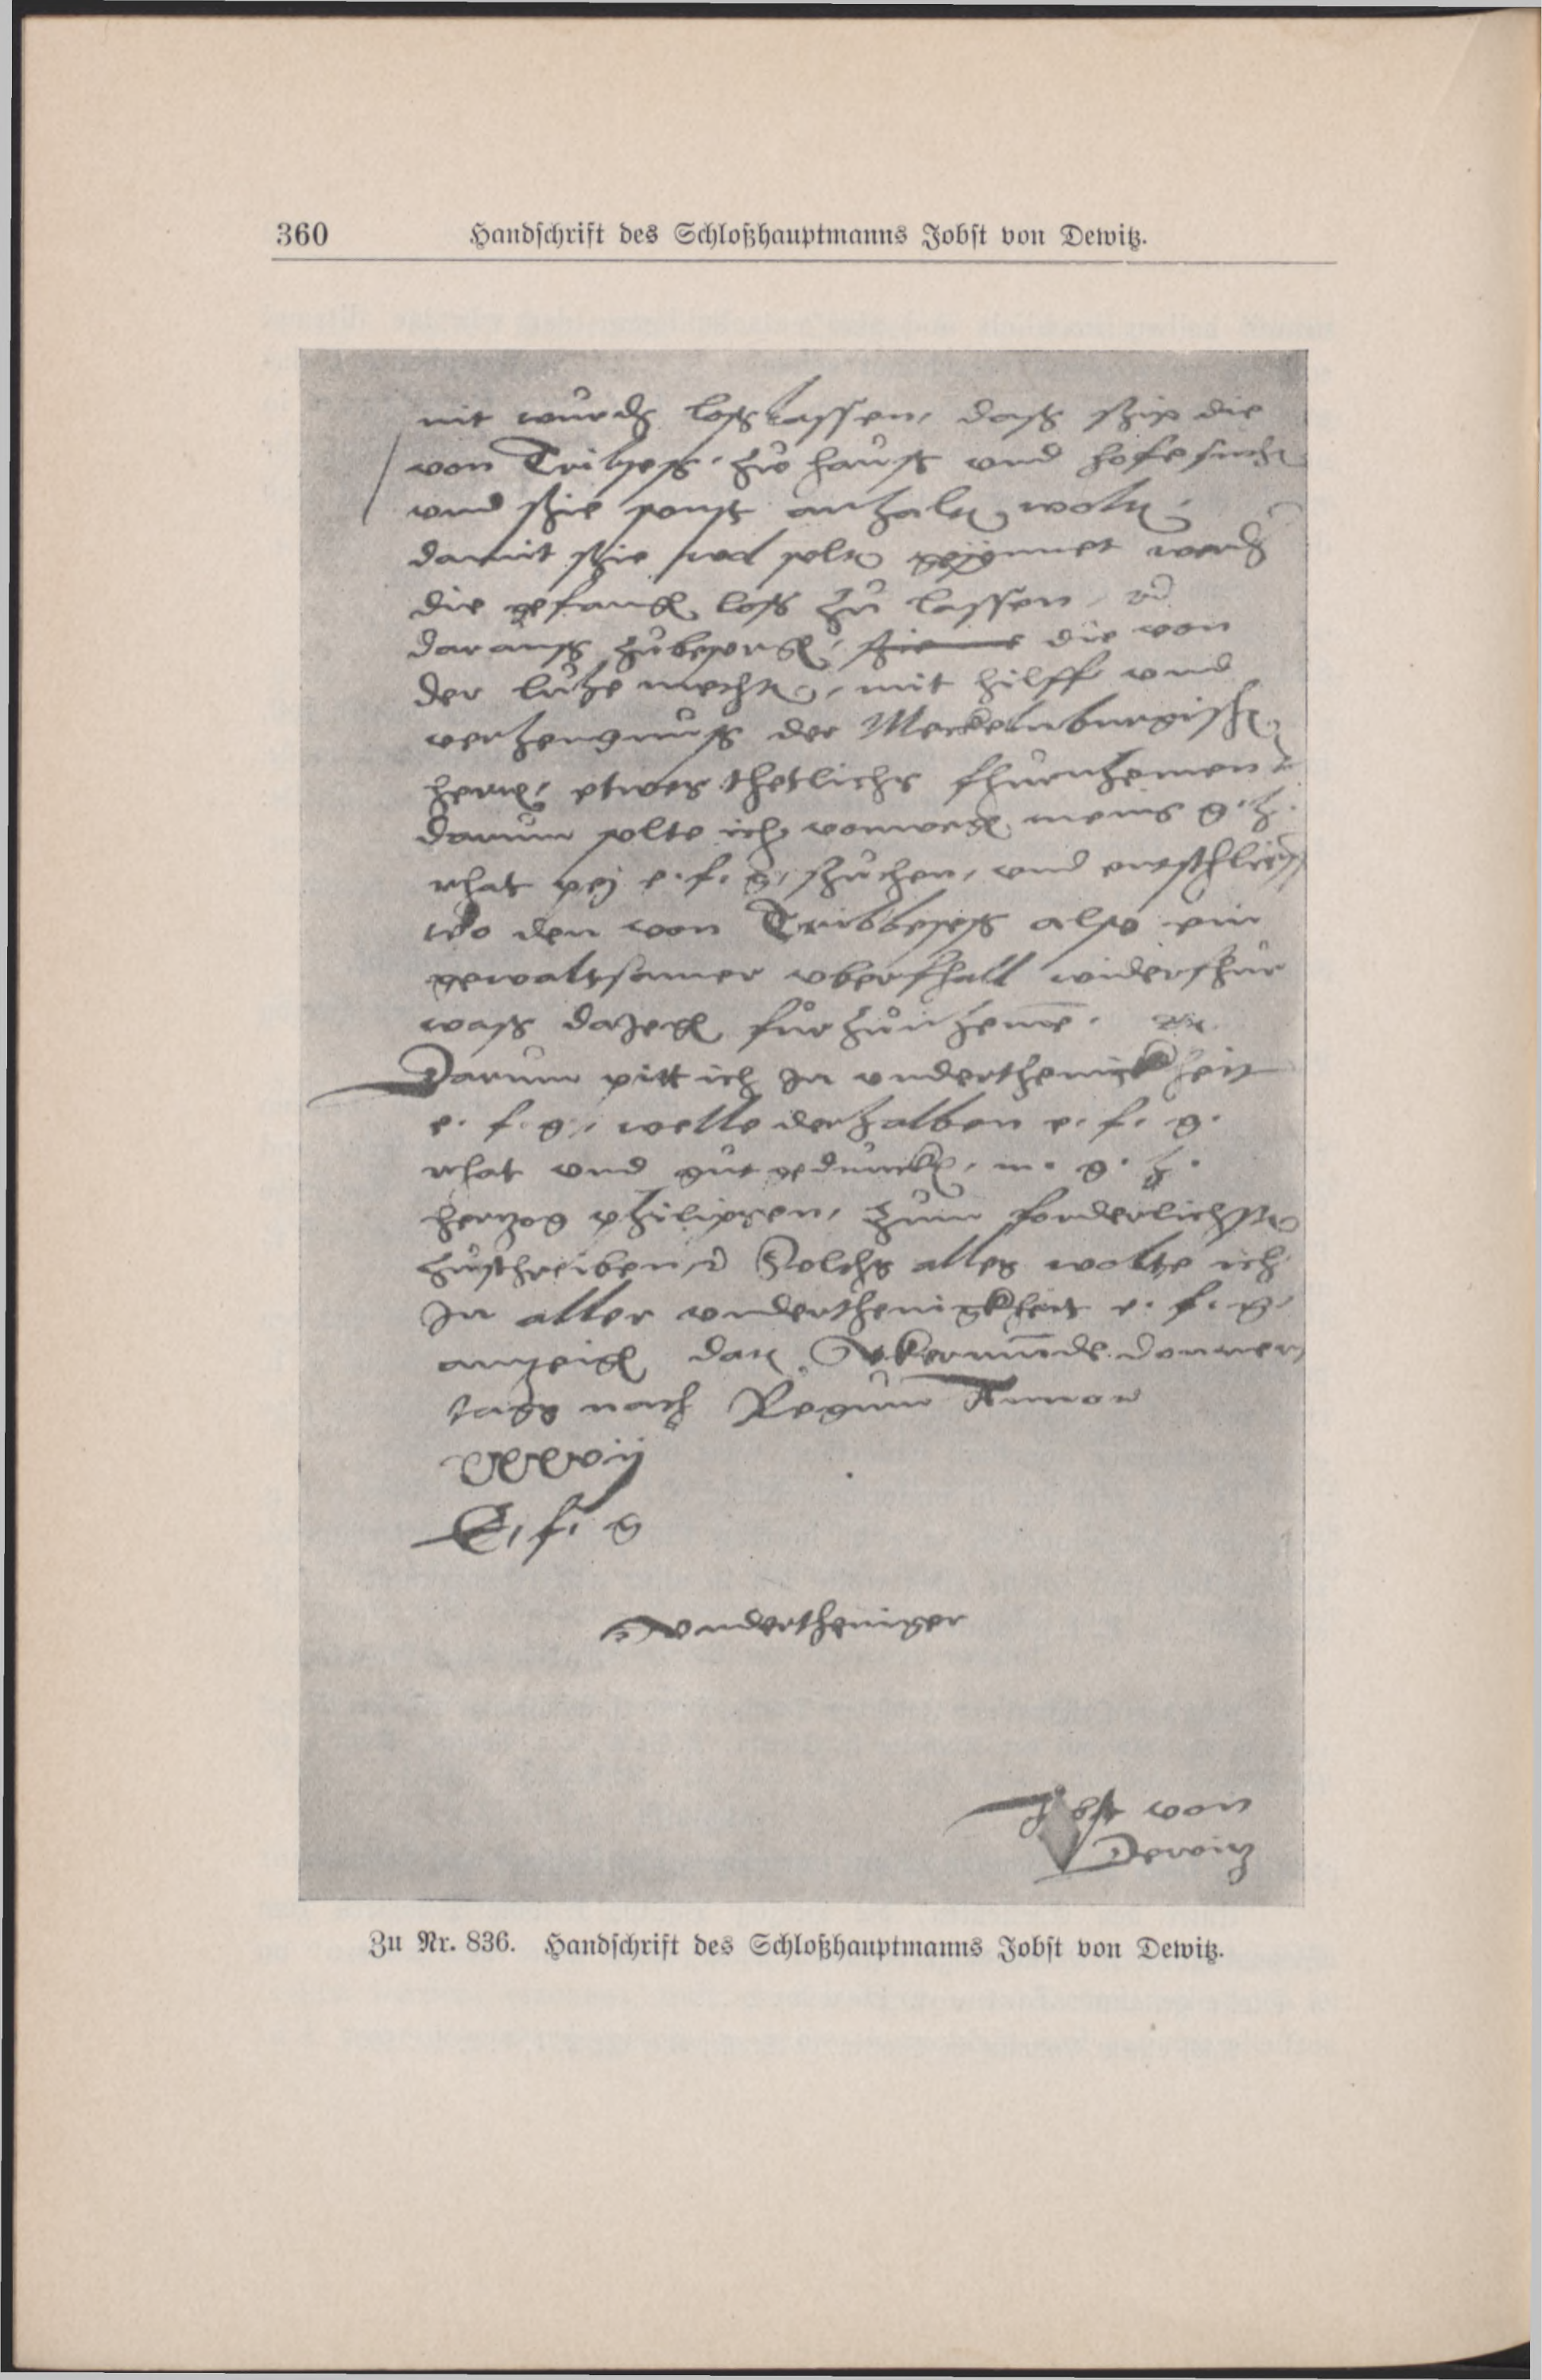 360 Handschrift des Schloßhauptmanns Jobst von Dewitz.
nit wurdẽ losz lassen, dasz shie die
von Tribses, zu hausz und hofe
und shie sonst anhaltẽ woltẽ,
damit shie soltẽ werdẽ
die gefangẽ losz zu lassen,
darausz zubesorgẽ, die von
der luhe mechtẽ, mit hilff und
verhengnusz der Meckelnburgischẽ
herrẽ, etwes thetlichs fhurnhemen
darum solte ich vonwegẽ meins g. h.
rhat pey e. f. g. shuchen, und
wo den von Tribbeses also ein
gewaltsamer uberfhall widerfhur
wasz dajegẽ furzunheme.
Darum pitt ich In underthenickheit
e. f. g., welle derhalben e. f. g.
rhat und gut geduncken, m. g. h.
herzog philipsen, zum forderlichsten
zuschreiben, Solchs alles wolte ich
In aller underthenigkheit e. f. g.
anzeigẽ dat. Ukermunde donners
tags nach Regum Anno
xxxvij
E. f. g
undertheniger
Jobst von
Dewitz
Zu Nr. 836. Handschrift des Schloßhauptmanns Jobst von Dewitz.